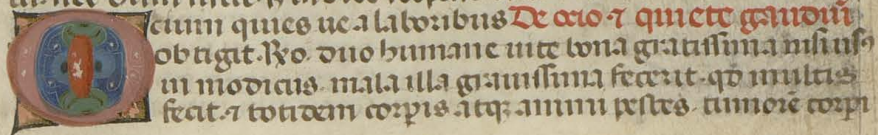 Ocium quies ue a laboribus De ocio ⁊ quiete gaudiū
obtigit. Rͦo. duo humane uite bona gratissima nisi usꝰ
in modicus. mala illa grauissima fecerit. qđ multis
fecit. ⁊ totidem corꝑis atqꝫ animi pestes. tumorē corꝑi